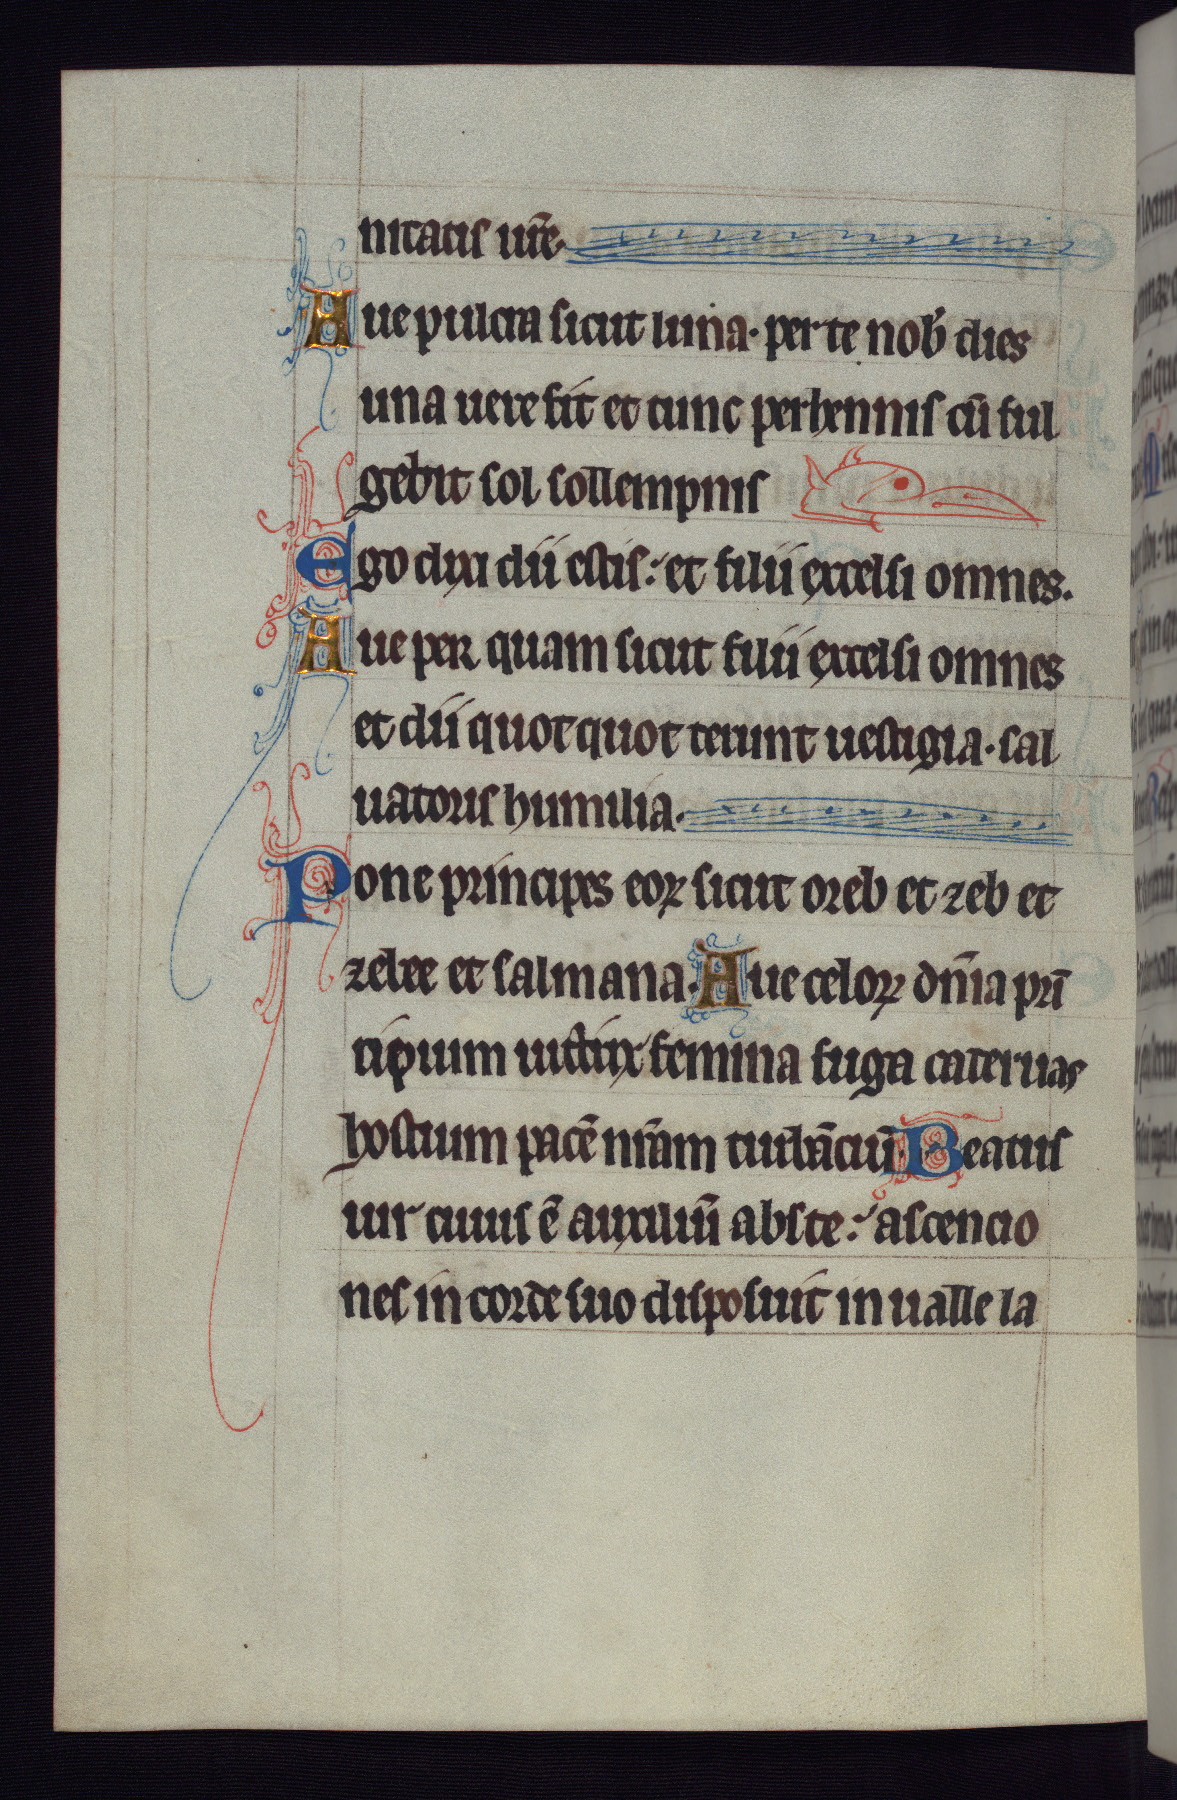 nitatis ur̄e.
Aue pulcra sicut luna· per te nob̄ dies
una uere fit et tunc perhennis cū ful
gebit sol sollempnis
Ego dixi dii estis: et filii excelsi omnes.
Aue per quam sicut filii excelsi omnes
et dii quotquot terunt uestigia· sal
uatoris humilia·
Pone principes eoꝝ sicut oreb et zeb et
zebee et salmana· Aue celoꝝ dn̄ia prī
cipium uictrix femina fuga cateruas
hostium pacē nr̄am turbāciū· Beatus
uir cuius ē auxiliū abs te: ascencio
nes in corde suo disposuit in ualle la